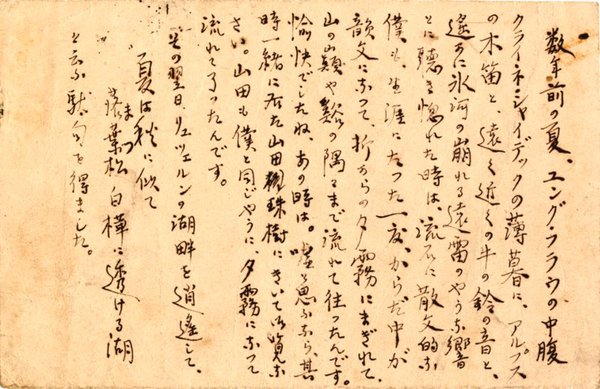 数年前の夏、ユングフラウの中腹
クライネシャイデックの薄暮に、アルプス
の木笛と、遠く近くの牛の鈴の音と、
遙かに氷河の崩れる遠雷のやうな響
とに聴き惚れた時は、流石に散文的な
僕も生涯にたった一度、からだ中が
韻文になって、折からの夕霧にまぎれて、
山の巓や谿の隅々まで流れて往ったんです。
愉快でしたね、あの時は。嘘と思ふなら、其
時一緒に居た山田珠樹にきいて御覧な
さい。山田も僕と同じやうに、夕霧になって
流れて了ったんです。
その翌日、リュツェルンの湖畔を逍遙して、
夏は秋に似て
落葉松白樺に透ける湖
まつ
と云ふ駄句を得ました。